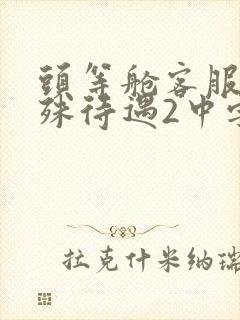 頭等舱客服
殊待遇2中字
拉克什米纳瑞